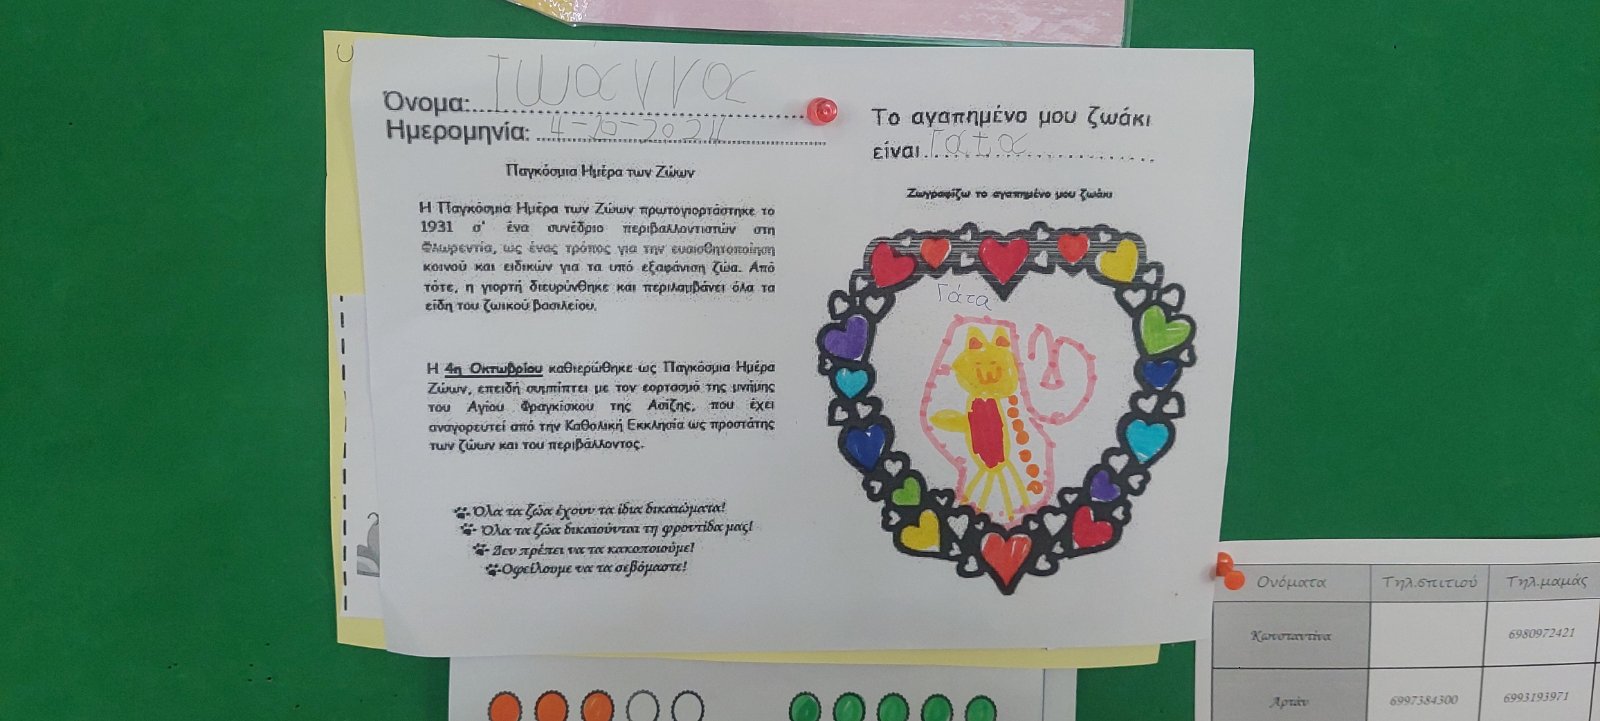 Όνομα: Ιωάννα
Ημερομηνία: 4-10-2021
Παγκόσμια Ημέρα των Ζώων
Η Παγκόσμια Ημέρα των Ζώων πρωτογιορτάστηκε το
1931 σ' ένα συνέδριο περιβαλλοντιστών στη
Φλωρεντία, ως ένας τρόπος για την ευαισθητοποίηση
κοινού και ειδικών για τα υπό εξαφάνιση ζώα. Από
τότε, η γιορτή διευρύνθηκε και περιλαμβάνει όλα τα
είδη του ζωικού βασιλείου.
Η 4η Οκτωβρίου καθιερώθηκε ως Παγκόσμια Ημέρα
Ζώων, επειδή συμπίπτει με τον εορτασμό της μνήμης
του Αγίου Φραγκίσκου της Ασίζης, που έχει
αναγορευτεί από την Καθολική Εκκλησία ως προστάτης
των ζώων και του περιβάλλοντος.
Όλα τα ζώα έχουν τα ίδια δικαιώματα!
Όλα τα ζώα δικαιούνται τη φροντίδα μας!
Δεν πρέπει να τα κακοποιούμε!
Οφείλουμε να τα σεβόμαστε!
Το αγαπημένο μου ζωάκι
είναι Γάτα
Ζωγραφίζω το αγαπημένο μου ζωάκι
Γάτα
Ονόματα Τηλ.σπιτιού Τηλ.μαμάς
Κωνσταντίνα 6980972421
Αρτάν 6997384300 6993193971